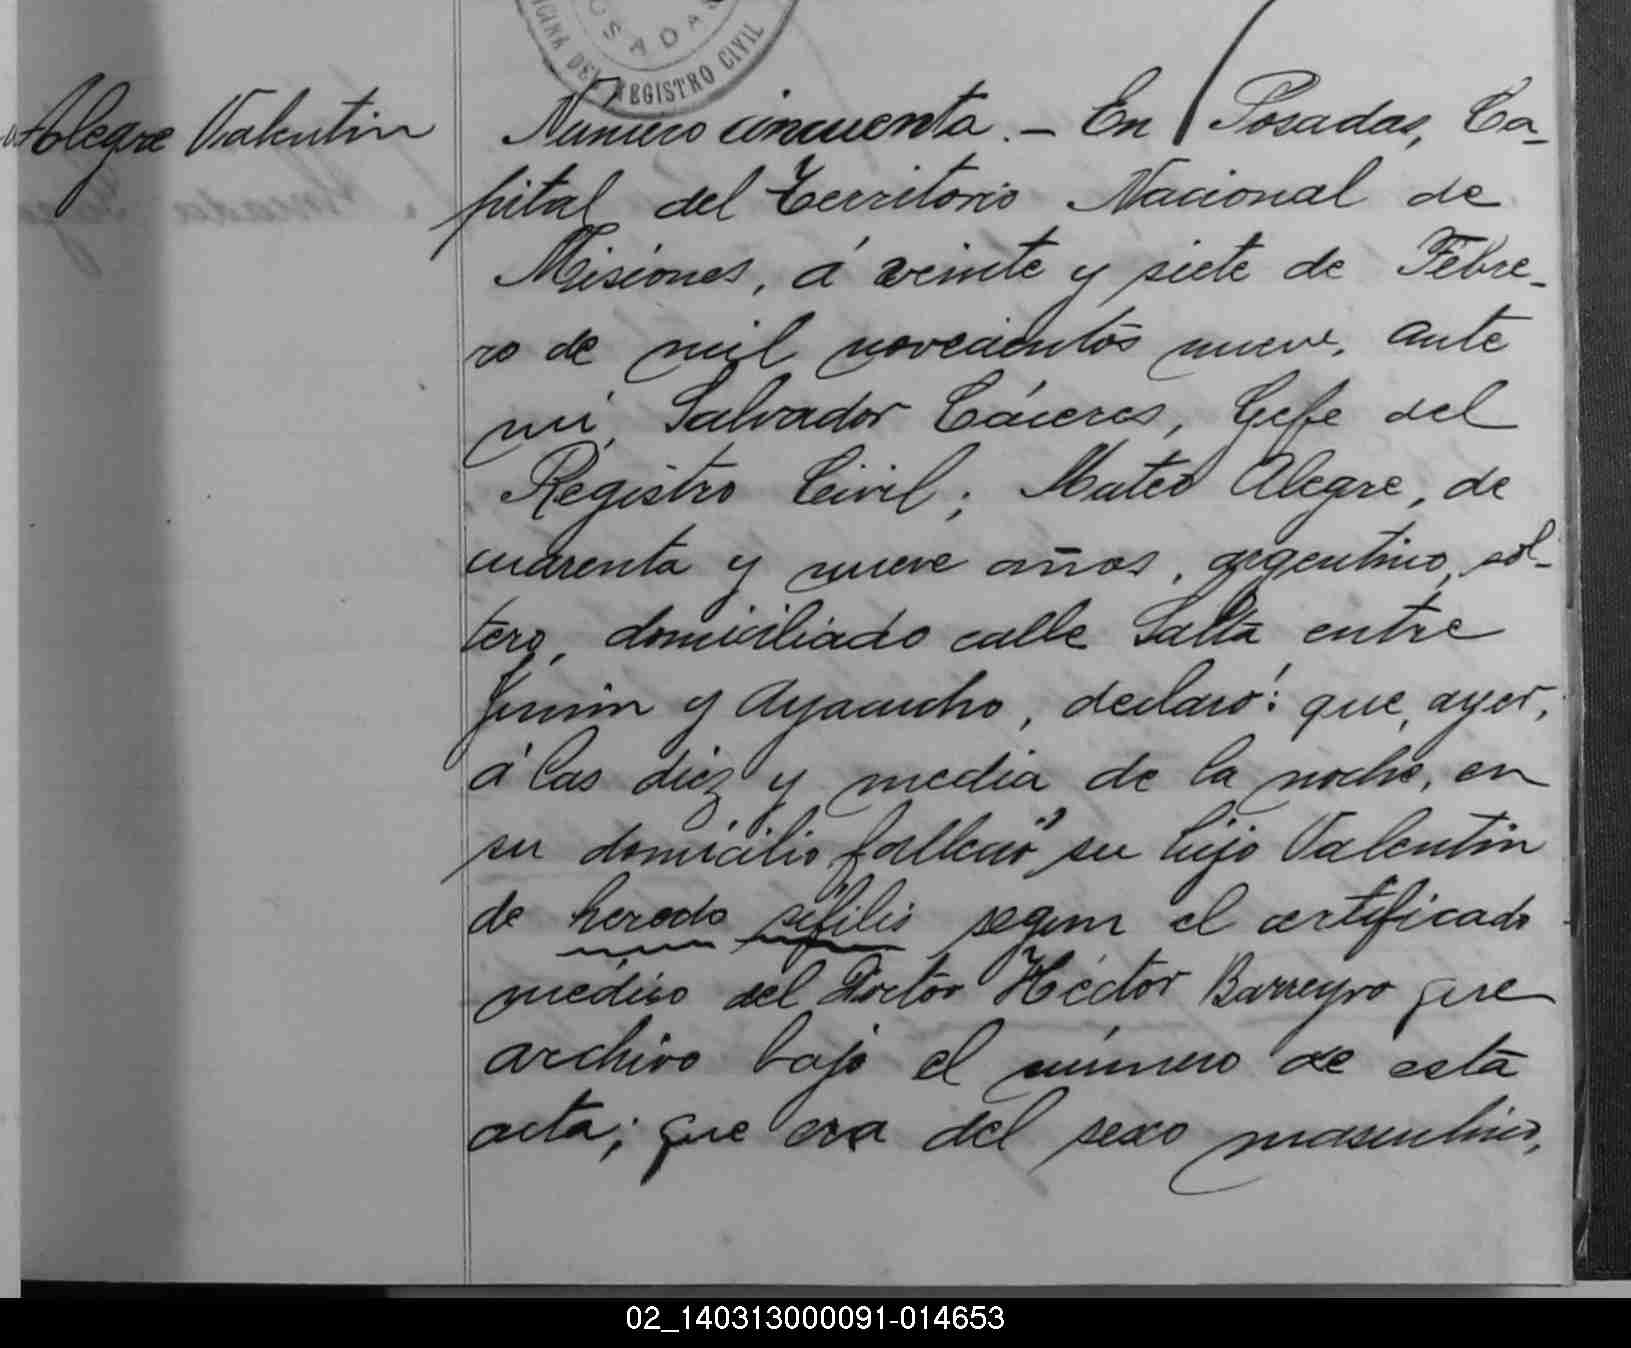 OFICINA DEL REGISTRO CIVIL
POSADAS
Alegre Valentin
Número cincuenta. - En Posadas, Ca-
pital del Territorio Nacional de
Misiones, á veinte y siete de Febre-
ro de mil novecientos nueve, ante
mí, Salvador Cáceres, Gefe del
Registro Civil; Mateo Alegre, de
cuarenta y nueve años, argentino, sol-
tero, domiciliado calle Salta entre
Junin y Ayacucho, declaró: que, ayer,
á las diez y media de la noche, en
su domicilio falleció su hijo Valentin
de heredo sífilis segun el certificado
médico del Doctor Héctor Barreyro que
archivo bajo el número de esta
acta; que era del sexo masculino,
02_140313000091-014653